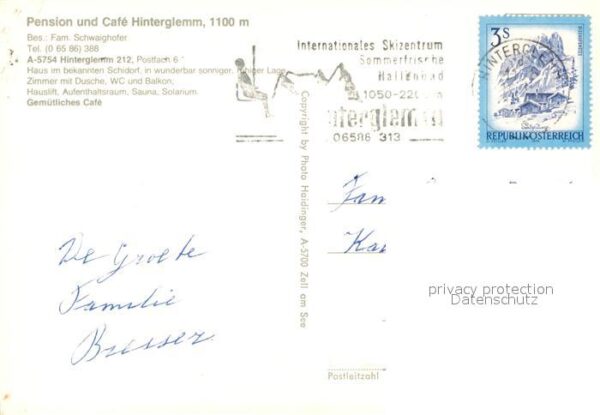 Pension und Café Hinterglemm, 1100 m
Bes.: Fam. Schwaighofer
Tel. (0 65 86) 388
A-5754 Hinterglemm 212, Postfach 6
Haus im bekannten Schidorf, in wunderbar sonniger, ruhiger Lage
Zimmer mit Dusche, WC und Balkon,
Hauslift, Aufenthaltsraum, Sauna, Solarium.
Gemütliches Café
Internationales Skizentrum
Sommerfrische
Hallenbad
1050-2200m
Hinterglemm
06586 313
HINTERGLEMM
3S
REPUBLIK ÖSTERREICH
Copyright by Photo Haidinger, A-5700 Zell am See
Fam
Kar
De Groete
Familie
Bresser
privacy protection
Datenschutz
Postleitzahl